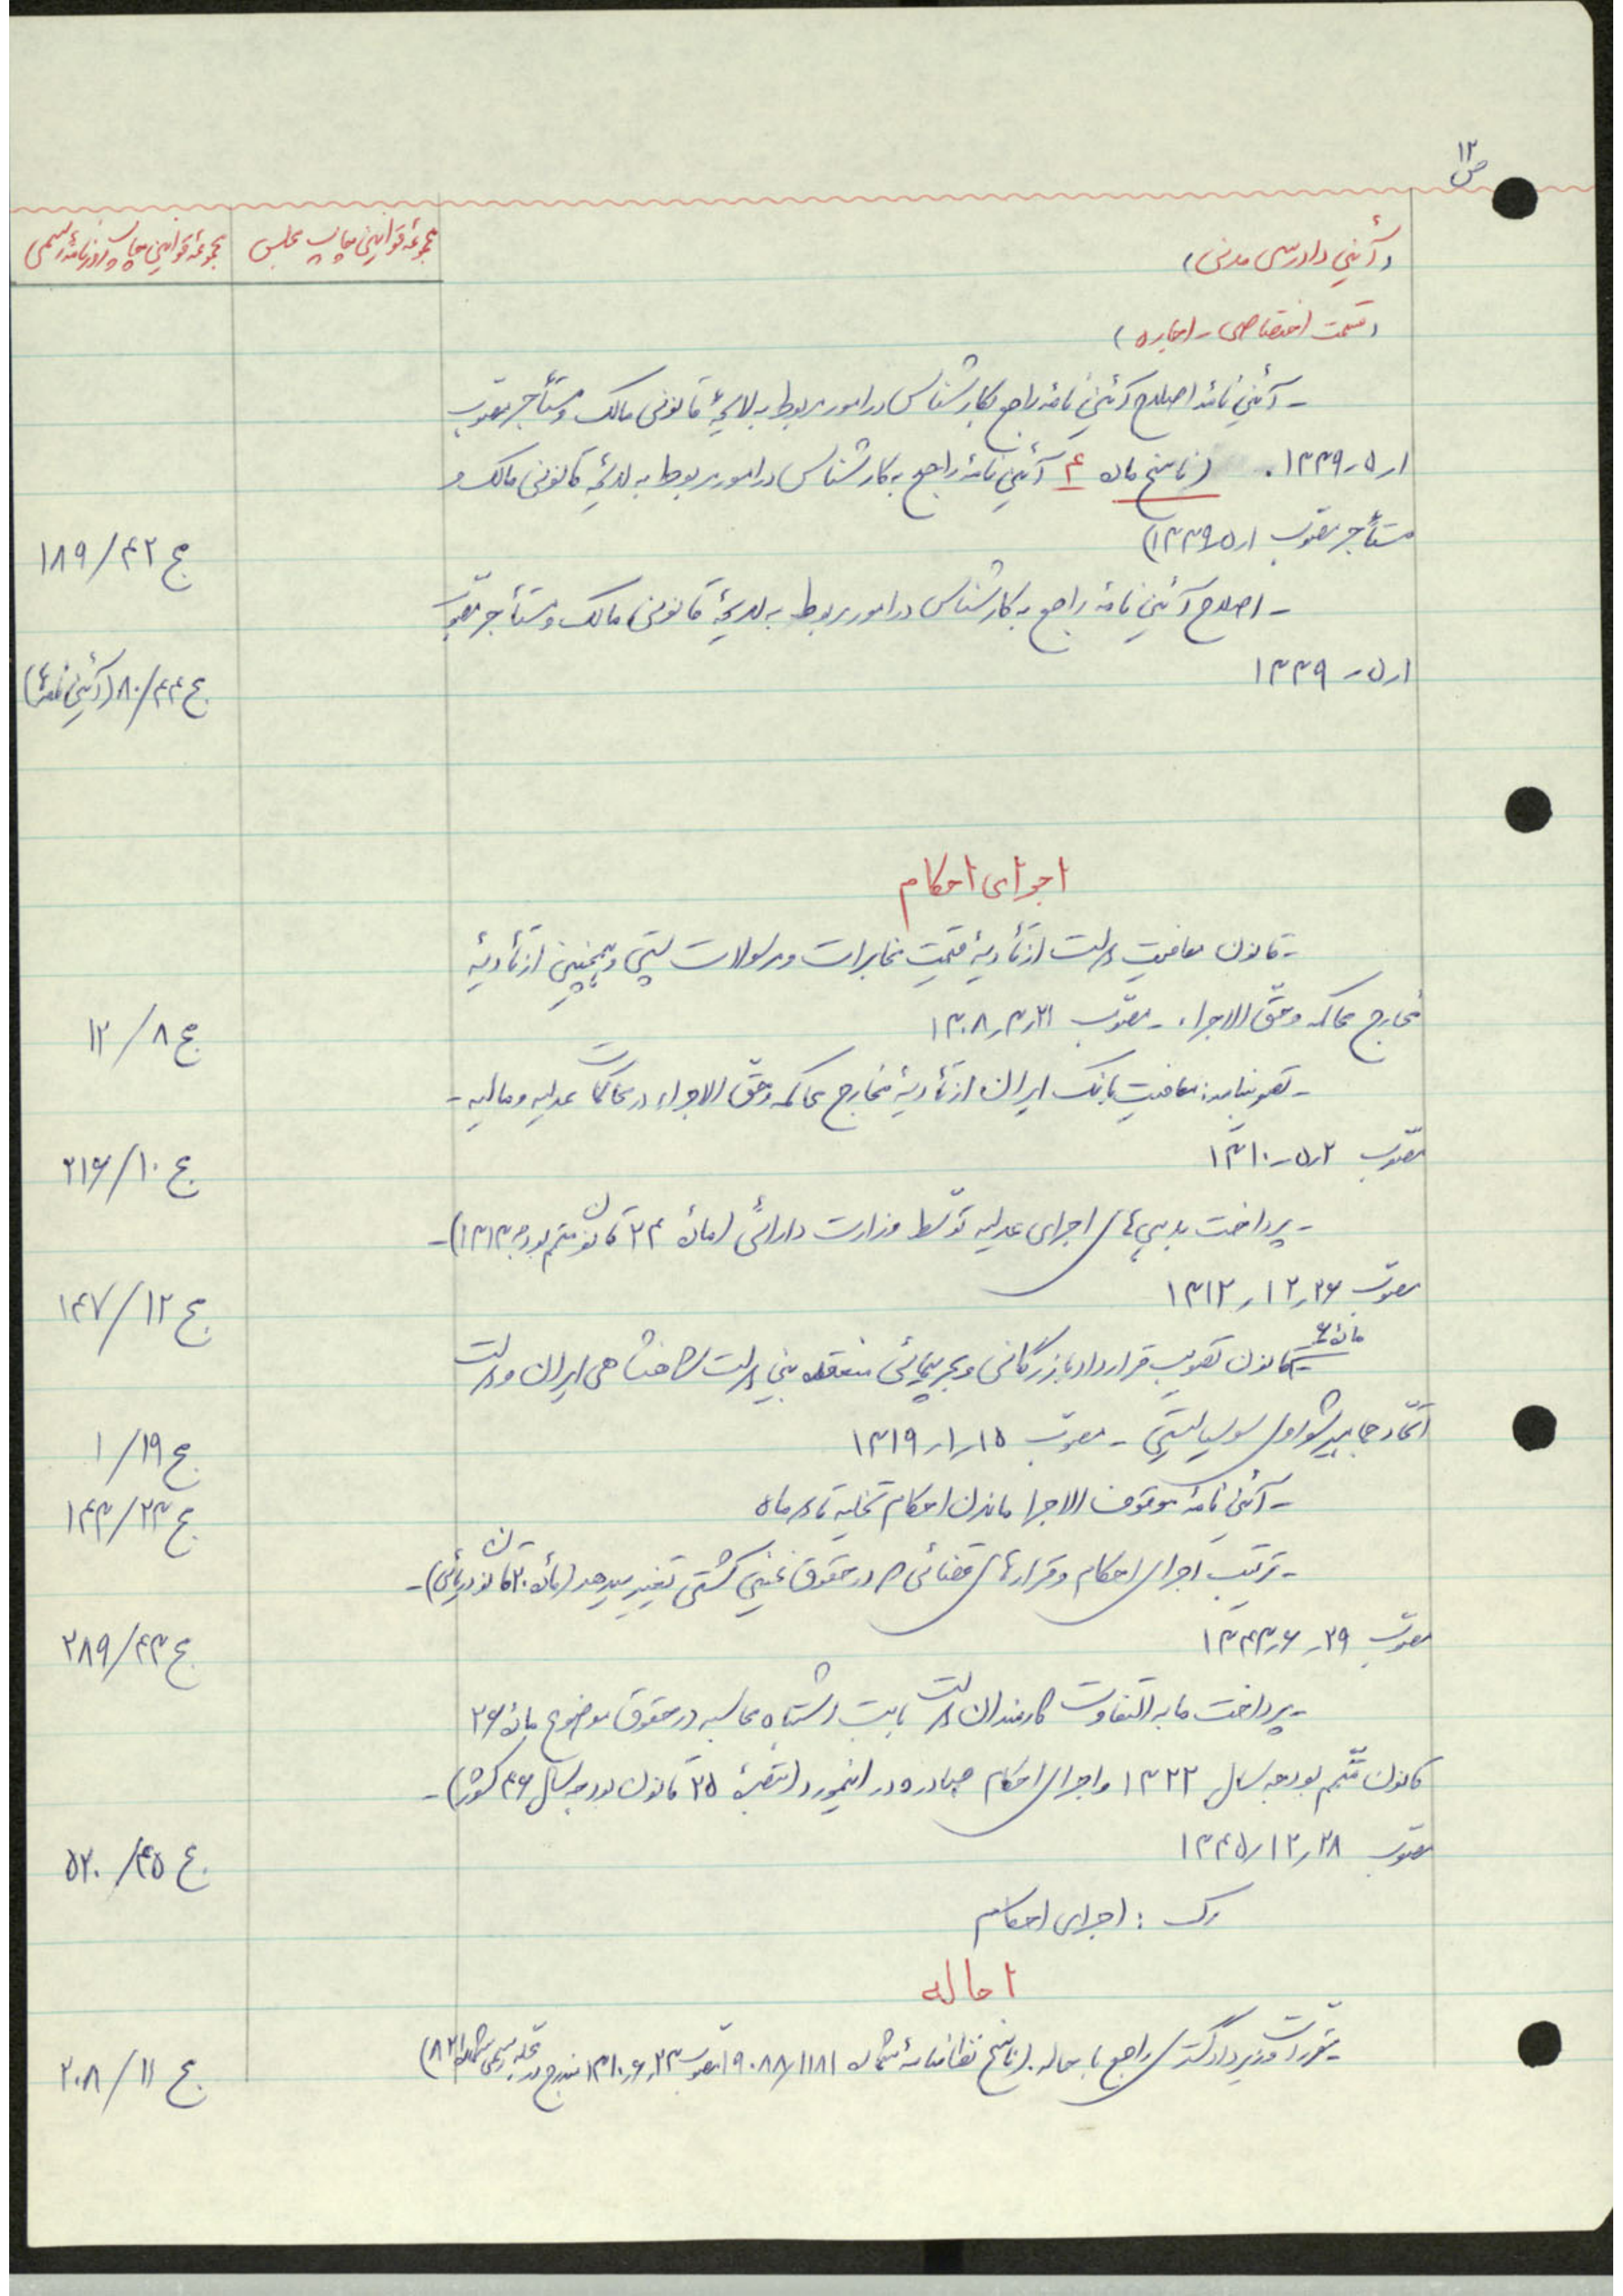 ص ۱۲
(آئین دادرسی مدنی)
مجموعهٔ قوانین چاپ مجلس
مجموعهٔ قوانین چاپ روزنامهٔ رسمی
(قسمت اختصاصی - اجاره)
- آئین نامهٔ اصلاح آئین نامهٔ راجع بکارشناس در امور مربوط به لایحهٔ قانونی مالک و مستأجر مصوّب
۱ر۵ر۱۳۳۹. (ناسخ ماده ۴ آئین نامهٔ راجع به کارشناس در امور مربوط به لایحهٔ قانونی مالک و
مستأجر مصوّب ۱ر۵ر۱۳۳۹)
ج ۴۲/۱۸۹
- اصلاح آئین نامهٔ راجع به کارشناس در امور مربوط به لایحهٔ قانونی مالک و مستأجر مصوّب
۱ر۵ر۱۳۳۹
ج ۴۴/۸۰ (آئین نامه‌ها)
اجرای احکام
- قانون معافیت دولت از تأدیهٔ قیمت مخابرات و مرسولات پستی و همچنین از تأدیهٔ
مخارج محاکمه و حقّ الاجراء - مصوّب ۳۱ر۳ر۱۳۰۸
ج ۸/۱۲
- تصویبنامه: معافیت بانک ایران از تأدیهٔ مخارج محاکمه و حقّ الاجراء در محاکمات عدلیه و مالیه -
مصوّب ۲ر۵ر۱۳۱۰
ج ۱۰/۲۱۶
- پرداخت بدهی‌های اجرای عدلیه توسّط وزارت دارائی (مادهٔ ۲۴ قانون متمم بودجه ۱۳۱۳) -
مصوّب ۲۶ر۱۲ر۱۳۱۲
ج ۱۲/۱۴۷
- مادهٔ ۶ قانون تصویب قرارداد بازرگانی و بحرپیمائی منعقده بین دولت شاهنشاهی ایران و دولت
اتّحاد جماهیر شوروی سوسیالیستی - مصوّب ۱۵ر۱ر۱۳۱۹
ج ۱۹/۱
- آئین نامهٔ موقوف الاجرا ماندن احکام تخلیه تا دو ماه
ج ۲۳/۱۴۳
- ترتیب اجرای احکام و قرارهای قضائی که در حقوق عینی کشتی تغییر میدهد (مادهٔ ۲۰ قانون دریائی) -
مصوّب ۲۹ر۶ر۱۳۴۳
ج ۴۳/۲۸۹
- پرداخت مابه التفاوت کارمندان دولت بابت اشتباه محاسبه در حقوق موضوع مادهٔ ۲۶
قانون متّمم بودجه سال ۱۳۲۲ و اجرای احکام صادره در اینمورد (تبصرهٔ ۲۵ قانون بودجه سال ۴۶ کشور) -
مصوّب ۲۸ر۱۲ر۱۳۴۵
ج ۴۵/۵۲۰
رک : اجرای احکام
احاله
- مقررات وزیر دادگستری راجع باحاله. (ناسخ نظامنامهٔ شماره ۱۹۰۸۸/۱۱۸۱ مصوّب ۲۳ر۶ر۱۳۱۰ مندرج در مجله رسمی شماره ۸۲۱)
ج ۱۱/۲۰۸